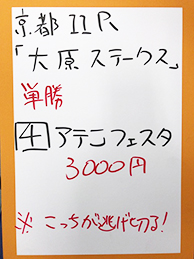 京都11R
「大原ステークス」
単勝
4 アテニフェスタ
3000円
※こっちが逃げ切る!